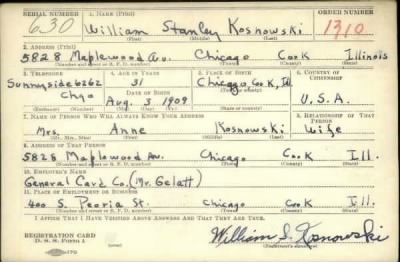 SERIAL NUMBER 1. NAME (Print) ORDER NUMBER
630 William Stanley Kosnowski 1310
(First) (Middle) (Last)
2. ADDRESS (Print)
5828 Maplewood Av. Chicago Cook Illinois
(Number and street or R. F. D. number) (Town) (County) (State)
3. TELEPHONE 4. AGE IN YEARS 5. PLACE OF BIRTH 6. COUNTRY OF CITIZENSHIP
Sunnyside 6262 31 Chicago Cook, Ill
DATE OF BIRTH
Chgo Aug. 3 1909 U.S.A.
(Exchange) (Number) (Mo.) (Day) (Yr.) (Town or county) (State or country)
7. NAME OF PERSON WHO WILL ALWAYS KNOW YOUR ADDRESS 8. RELATIONSHIP OF THAT PERSON
Mrs. Anne Kosnowski Wife
(Mr., Mrs., Miss) (First) (Middle) (Last)
9. ADDRESS OF THAT PERSON
5828 Maplewood Av. Chicago Cook Ill.
(Number and street or R. F. D. number) (Town) (County) (State)
10. EMPLOYER'S NAME
General Card Co. (Mr. Gelatt)
11. PLACE OF EMPLOYMENT OR BUSINESS
400 S. Peoria St. Chicago Cook Ill.
(Number and street or R. F. D. number) (Town) (County) (State)
I AFFIRM THAT I HAVE VERIFIED ABOVE ANSWERS AND THAT THEY ARE TRUE.
REGISTRATION CARD
D. S. S. Form 1 William S. Kosnowski
(Registrant's signature)